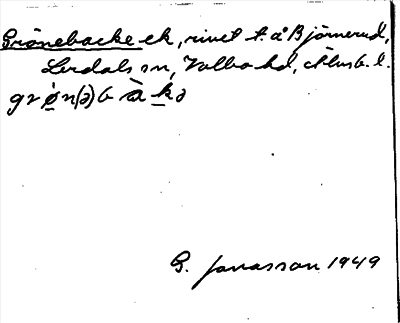 Grönebacke ek, rivet t. å Björnerud,
Lerdals sn, Valbo hd, Älvsb. l.
grø̀n(ə)bàkə
G. Jonasson 1949